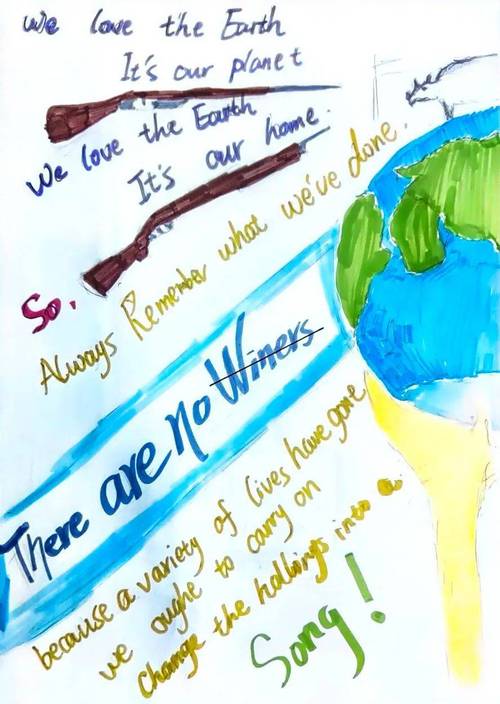 We love the Earth
It's our planet
We love the Earth
It's our home.
So,
Always Remember what we've done.
There are no Winers
because a variety of lives have gone
we oughe to carry on
Change the hollings into a
Song!